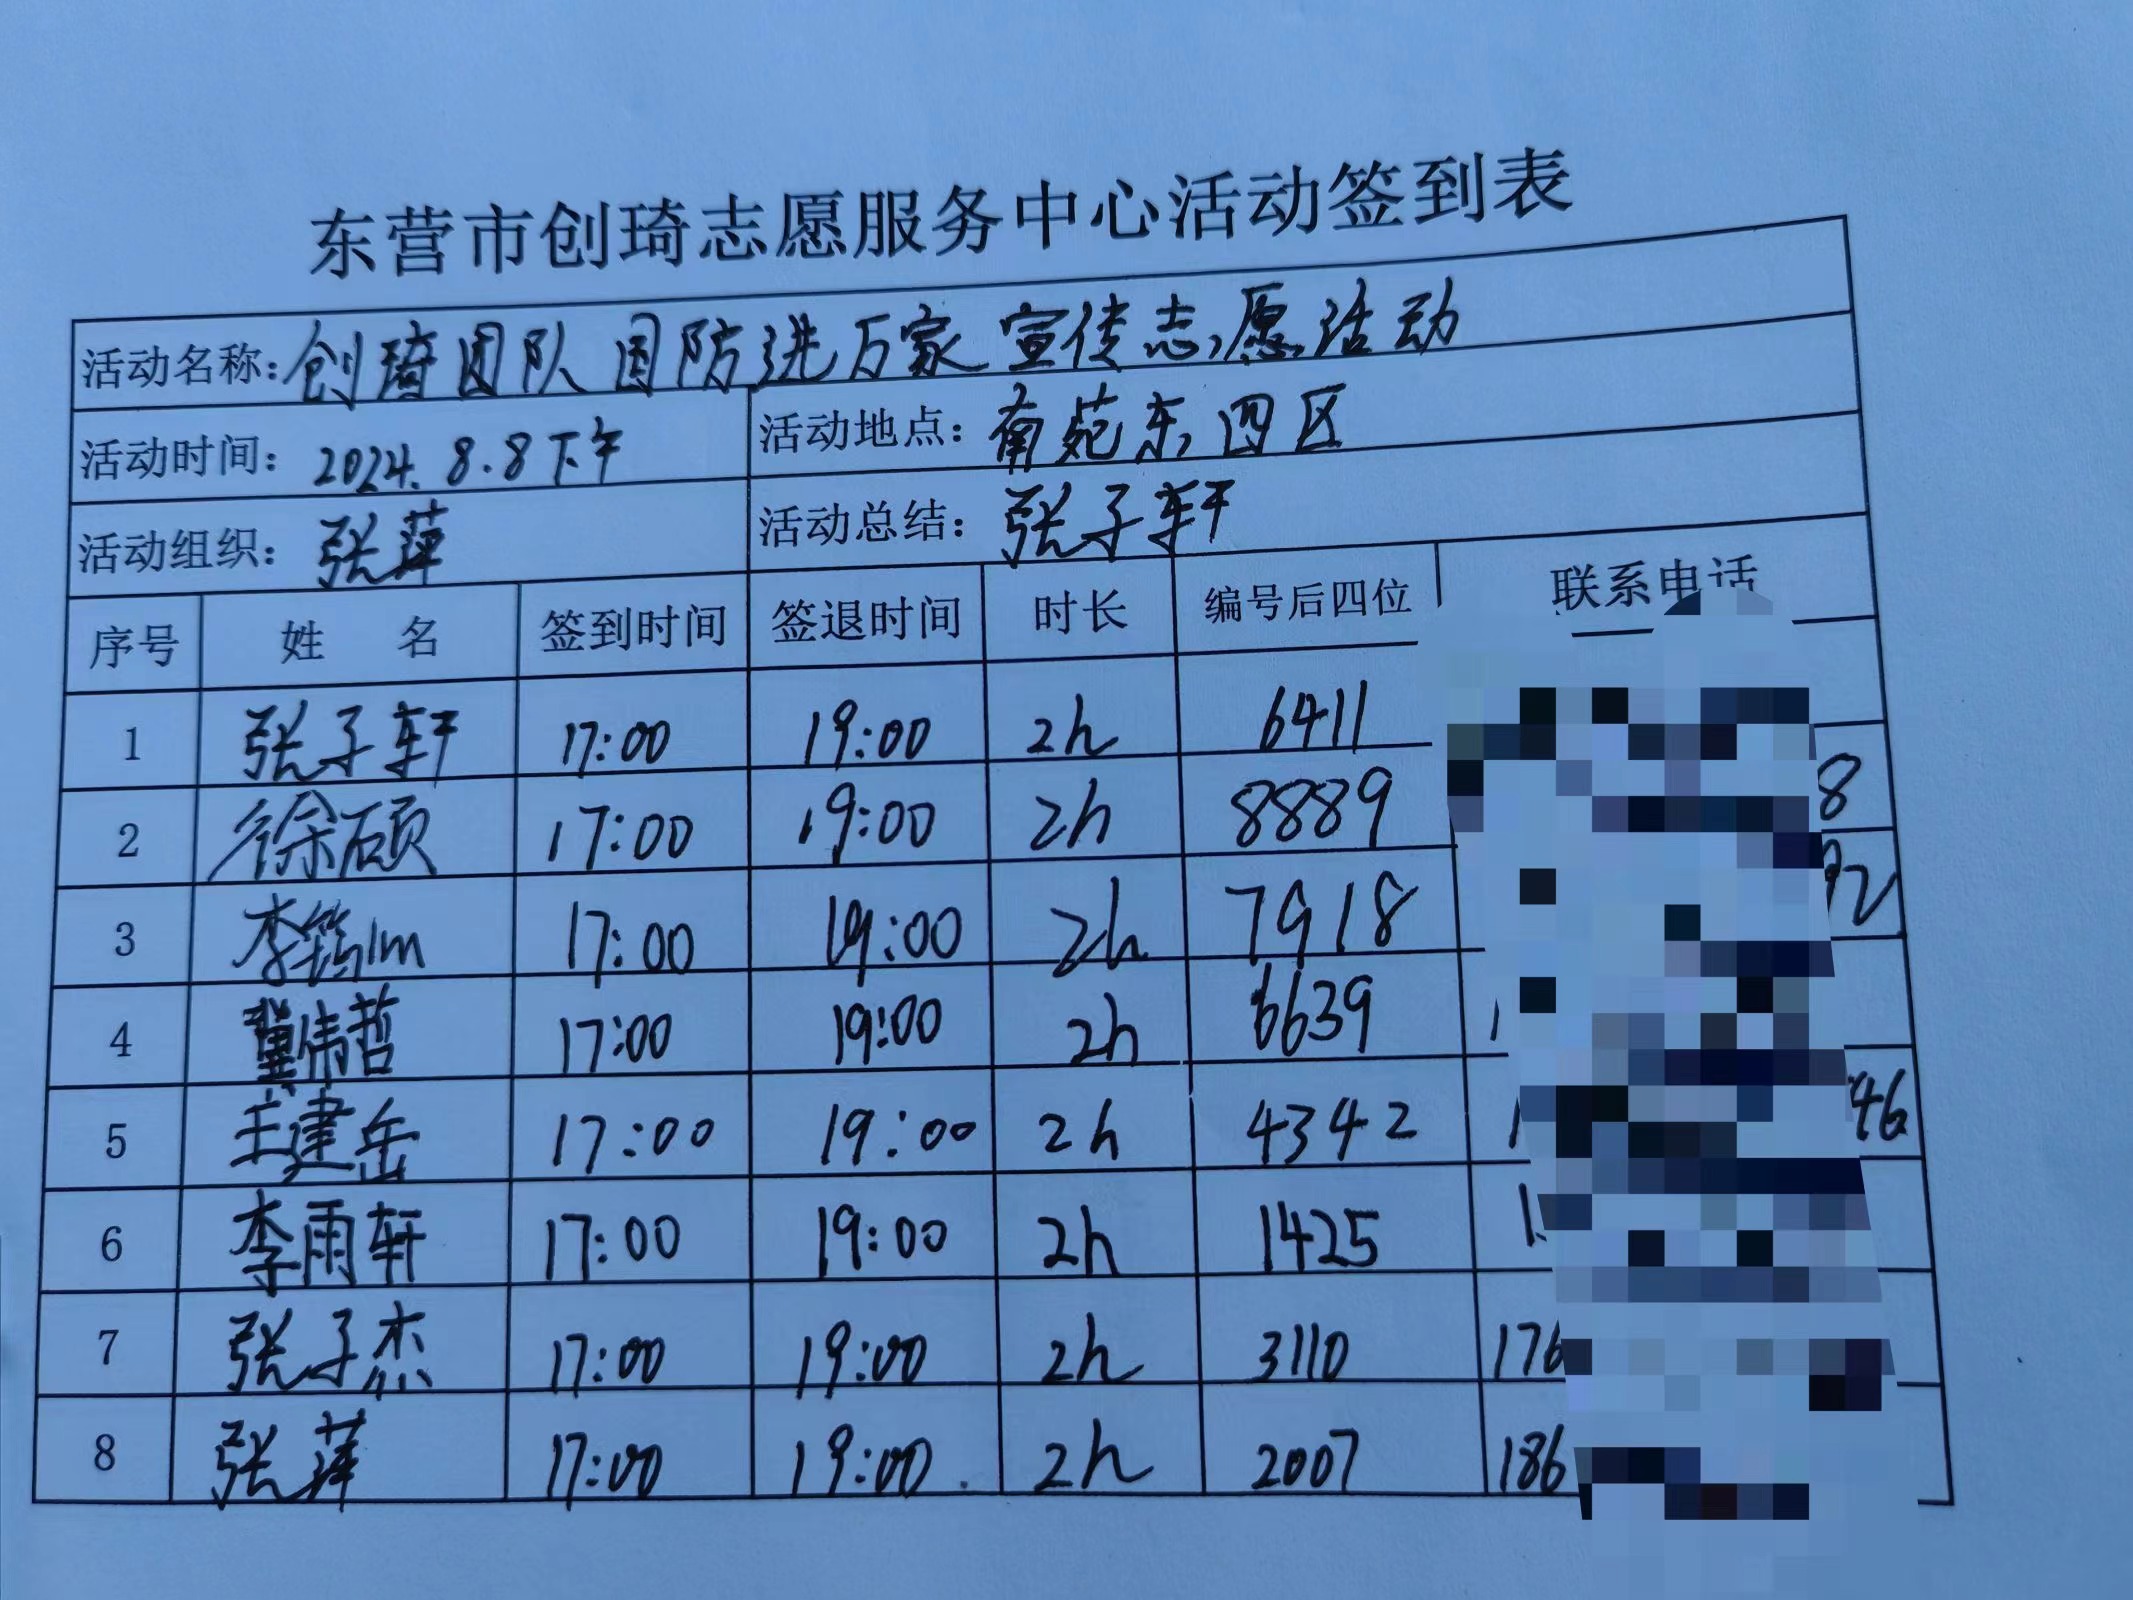 东营市创琦志愿服务中心活动签到表
活动名称：创琦团队国防进万家宣传志愿活动
活动时间：2024.8.8下午 活动地点：南苑东四区
活动组织：张萍 活动总结：张子轩
序号 姓 名 签到时间 签退时间 时长 编号后四位 联系电话
1 张子轩 17:00 19:00 2h 6411
2 徐硕 17:00 19:00 2h 8889 8
3 李筠 17:00 19:00 2h 7918 92
4 冀伟哲 17:00 19:00 2h 6639 1
5 王建岳 17:00 19:00 2h 4342 1 46
6 李雨轩 17:00 19:00 2h 1425 1
7 张子杰 17:00 19:00 2h 3110 176
8 张萍 17:00 19:00 2h 2007 186